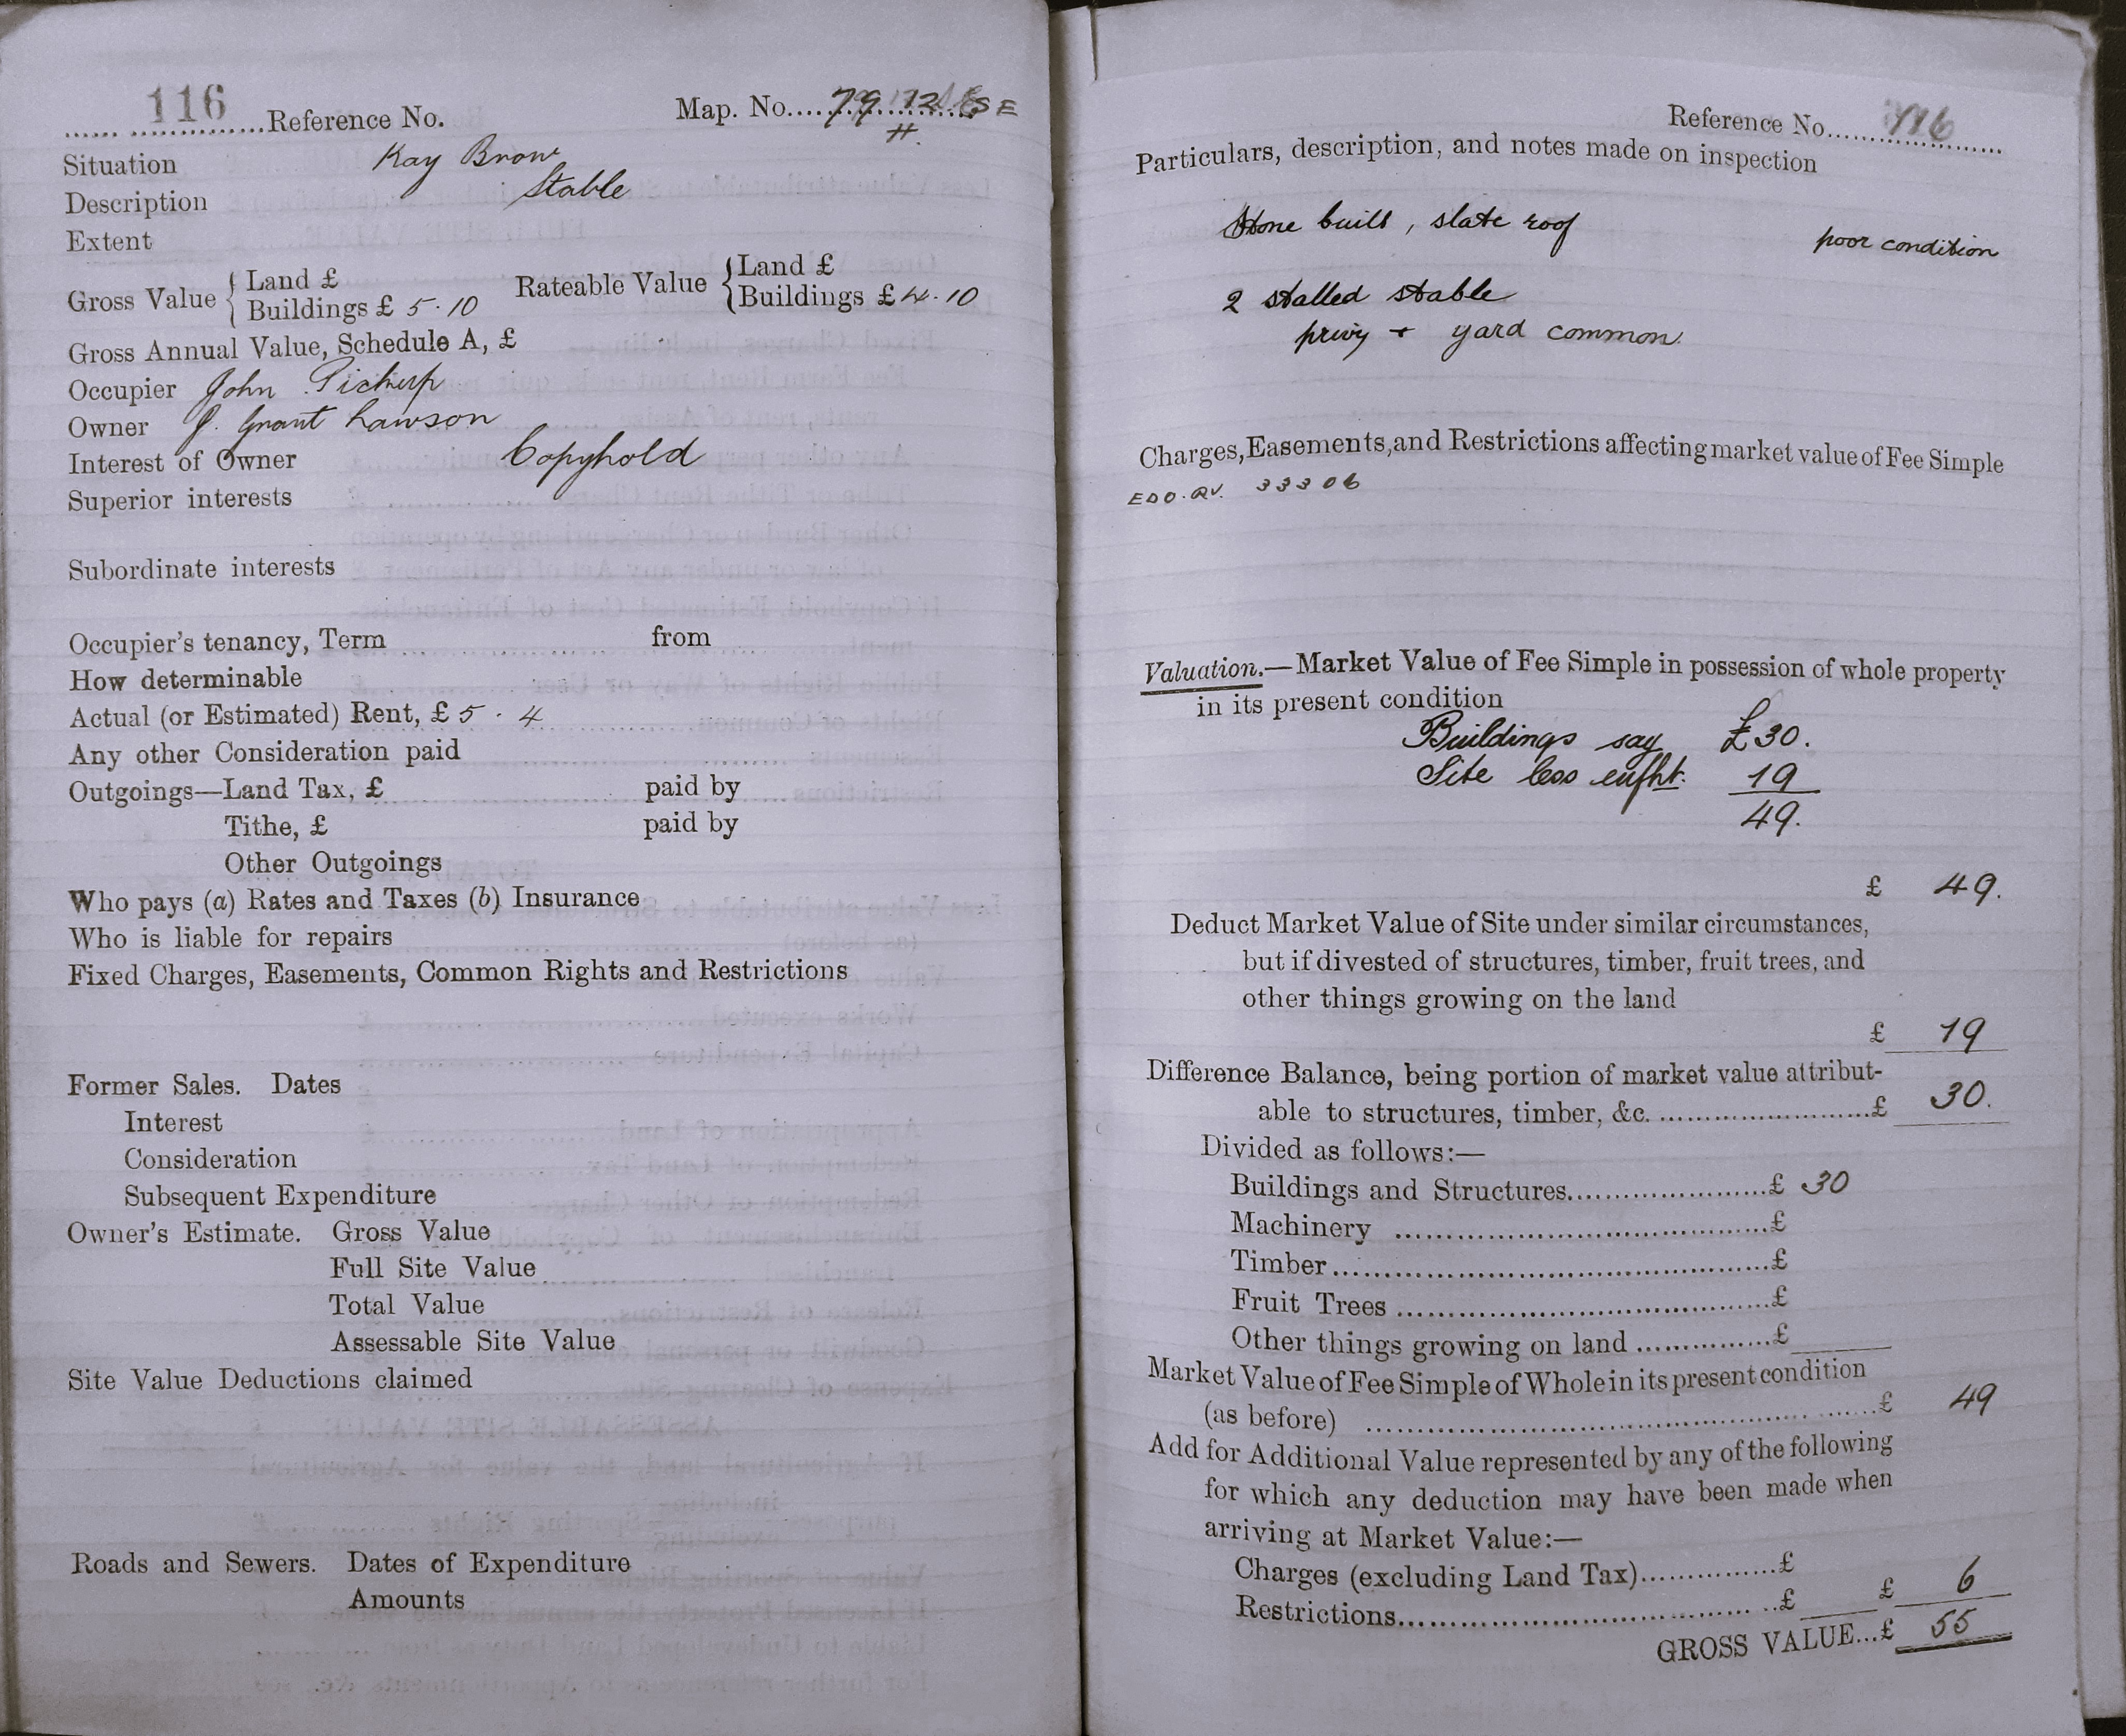 116 Reference No. Map. No. 79 12 SE
Situation Kay Brow
Description Stable
Extent
Gross Value { Land £
Buildings £ 5.10 Rateable Value { Land £
Buildings £ 4.10
Gross Annual Value, Schedule A, £
Occupier John Pickup
Owner J. Grant Lawson
Interest of Owner Copyhold
Superior interests
Subordinate interests
Occupier's tenancy, Term from
How determinable
Actual (or Estimated) Rent, £ 5 . 4
Any other Consideration paid
Outgoings—Land Tax, £ paid by
Tithe, £ paid by
Other Outgoings
Who pays (a) Rates and Taxes (b) Insurance
Who is liable for repairs
Fixed Charges, Easements, Common Rights and Restrictions
Former Sales. Dates
Interest
Consideration
Subsequent Expenditure
Owner's Estimate. Gross Value
Full Site Value
Total Value
Assessable Site Value
Site Value Deductions claimed
Roads and Sewers. Dates of Expenditure
Amounts
Reference No. 116
Particulars, description, and notes made on inspection
Stone built, slate roof poor condition
2 stalled stable
privy + yard common.
Charges, Easements, and Restrictions affecting market value of Fee Simple
33306
Valuation.—Market Value of Fee Simple in possession of whole property
in its present condition
Buildings say £30.
Site less enfht. 19
49.
£ 49.
Deduct Market Value of Site under similar circumstances,
but if divested of structures, timber, fruit trees, and
other things growing on the land
£ 19
Difference Balance, being portion of market value attribut-
able to structures, timber, &c. £ 30.
Divided as follows:—
Buildings and Structures £ 30
Machinery £
Timber £
Fruit Trees £
Other things growing on land £
Market Value of Fee Simple of Whole in its present condition
(as before) £ 49
Add for Additional Value represented by any of the following
for which any deduction may have been made when
arriving at Market Value:—
Charges (excluding Land Tax) £
Restrictions £ £ 6
GROSS VALUE...£ 55